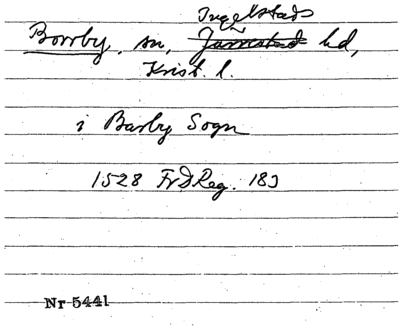 Ingelstads
Borrby, sn, Jarrestad hd,
Krist. l.
i Barby Sogn
1528 FrDReg. 183
Nr 5441